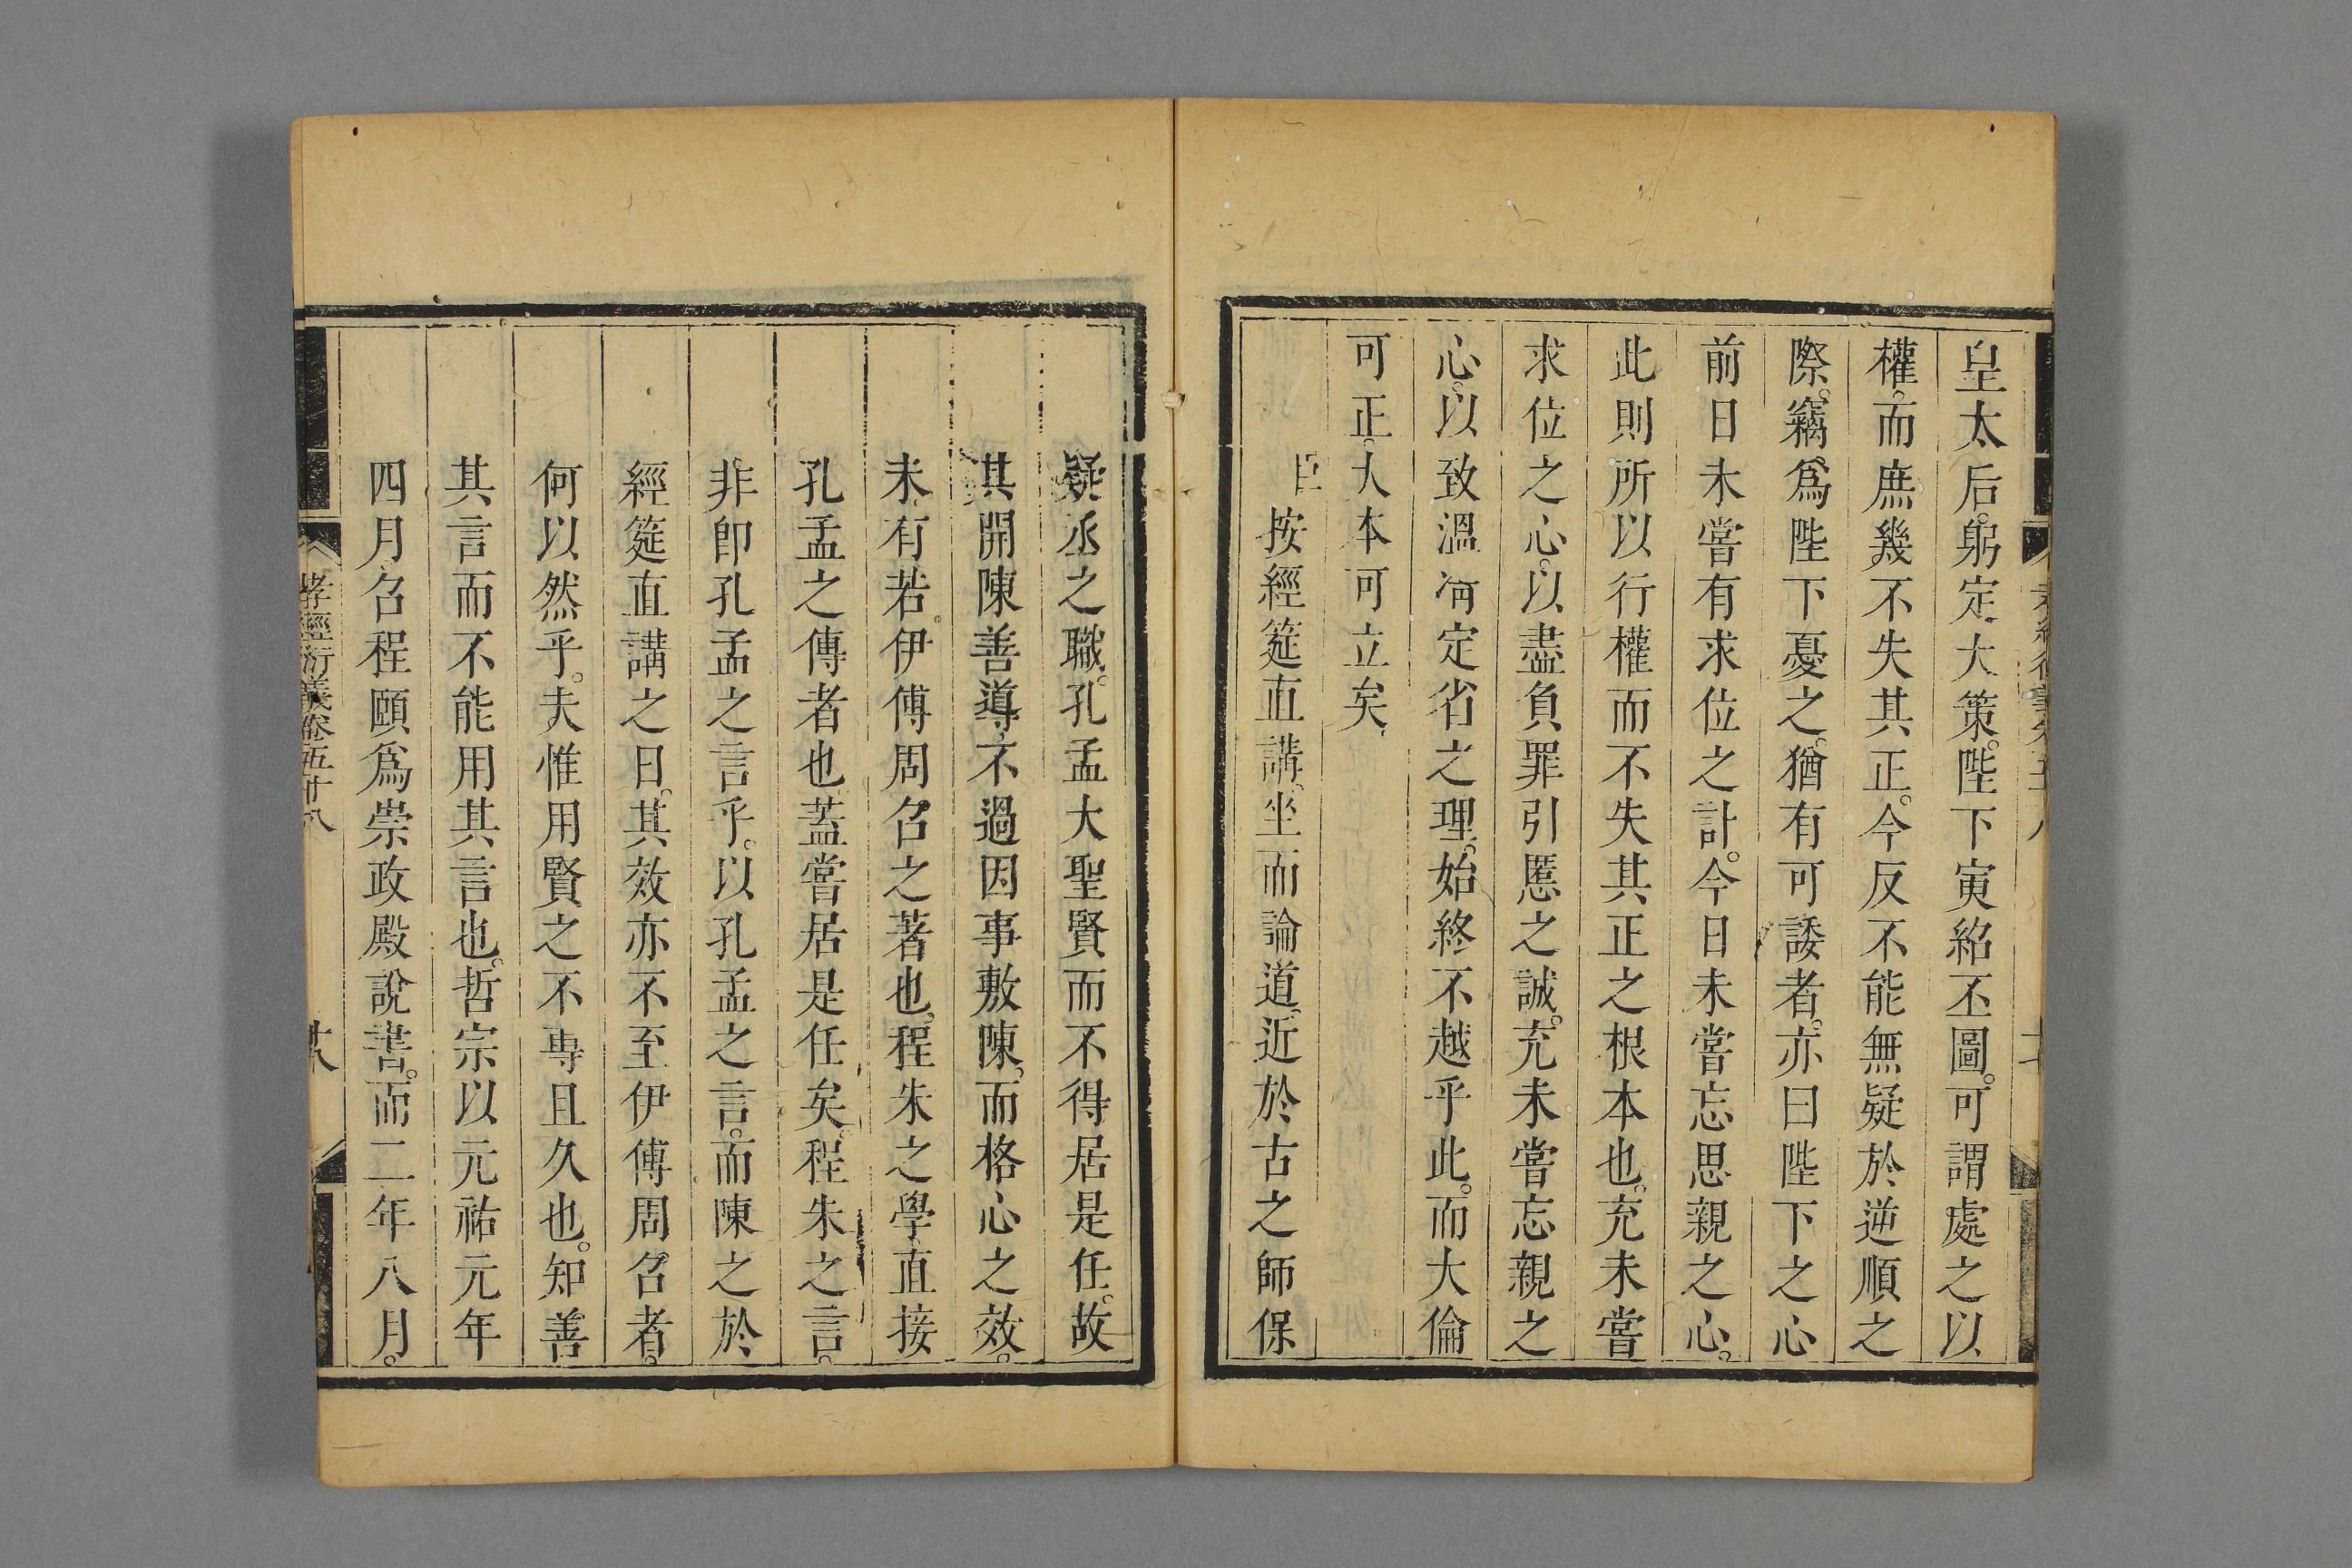 皇太后。躬定大策。陛下寅紹丕圖。可謂處之以
權。而庶幾不失其正。今反不能無疑於逆順之
際。竊爲陛下憂之。猶有可諉者。亦曰陛下之心
前日未嘗有求位之計。今日未嘗忘思親之心。
此則所以行權而不失其正之根本也。充未嘗
求位之心。以盡負罪引慝之誠。充未嘗忘親之
心。以致溫凊定省之理。始終不越乎此。而大倫
可正。大本可立矣
臣按經筵直講。坐而論道。近於古之師保
疑丞之職。孔孟大聖賢而不得居是任。故
其開陳善導。不過因事敷陳。而格心之效。
未有若。伊傅周召之著也。程朱之學。直接
孔孟之傳者也。蓋嘗居是任矣。程朱之言。
非卽孔孟之言乎。以孔孟之言。而陳之於
經筵直講之日。其效亦不至伊傅周召者。
何以然乎。夫惟用賢之不專且久也。知善
其言而不能用其言也。哲宗以元祐元年
四月召程頤爲崇政殿說書。而二年八月。
孝經衍義卷五十八